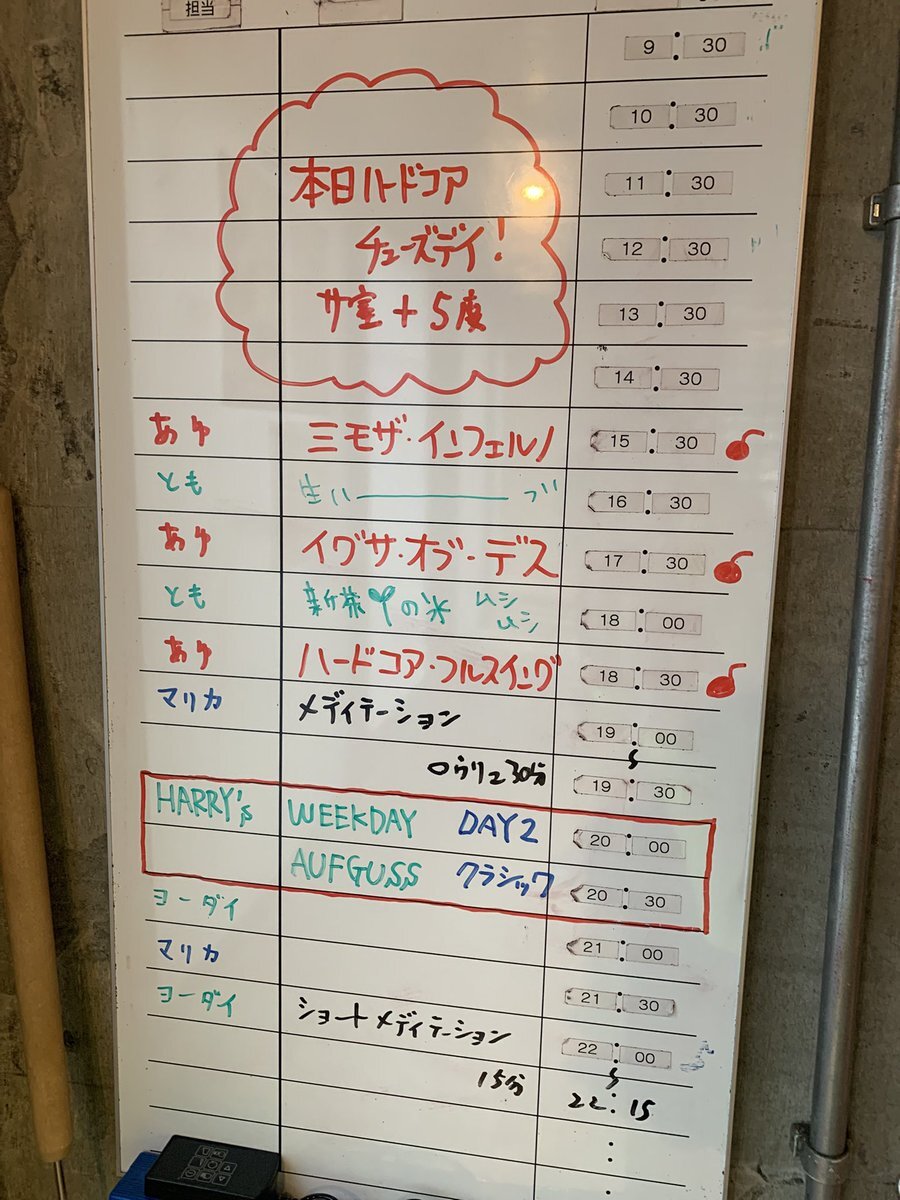 担当
9:30
10:30
本日ハードコア 11:30
チューズデイ! 12:30
サ室+5度 13:30
14:30
あゆ ミモザ・インフェルノ 15:30
とも 16:30
あゆ イグサ・オブ・デス 17:30
とも 新茶の米 ムシムシ 18:00
あゆ ハードコア・フルスイング 18:30
マリカ メディテーション 19:00
ロウリュ30分 〜 19:30
HARRY's WEEKDAY DAY2 20:00
AUFGUSS クラシック 20:30
ヨーダイ 21:00
マリカ 21:30
ヨーダイ ショートメディテーション 22:00
15分 〜 22:15
: